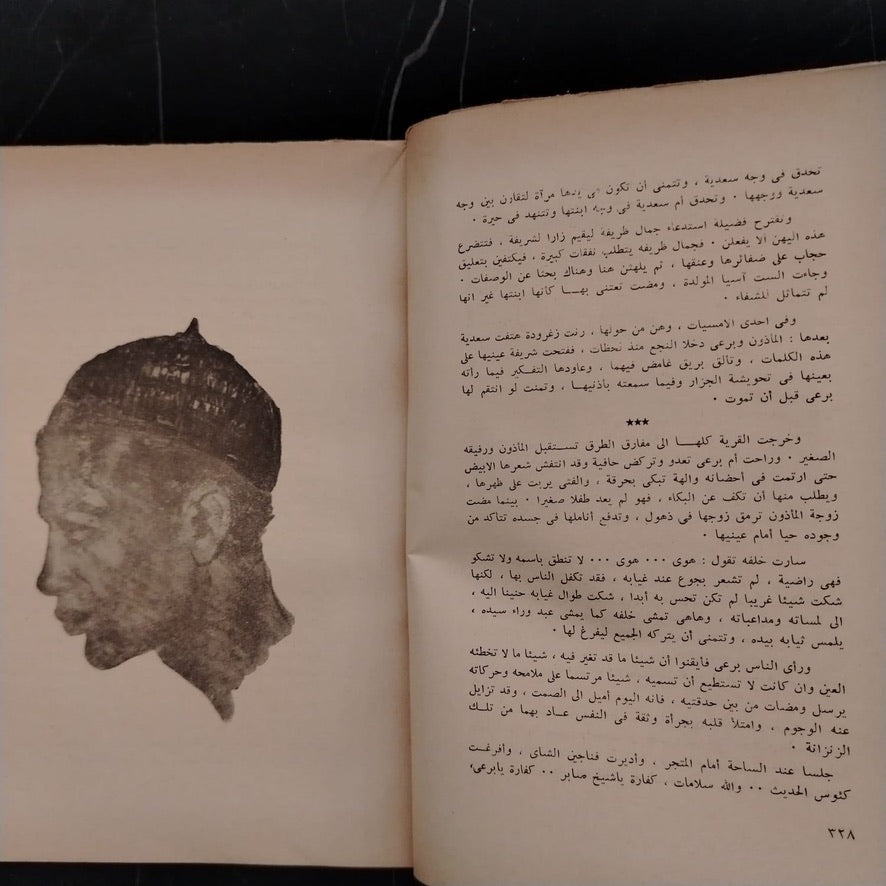 تحدق فى وجه سعدية ، وتتمنى أن تكون فى يدها مرآة لتقارن بين وجه
سعدية ووجهها . وتحدق أم سعدية فى وجه ابنتها وتتنهد فى حيرة .
وتقترح فضيلة استدعاء جمال ظريفة ليقيم زارا لشريفة ، فتتضرع
هذه اليهن ألا يفعلن . فجمال ظريفه يتطلب نفقات كبيرة ، فيكتفين بتعليق
حجاب على ضفائرها وعنقها ، ثم يلهثن هنا وهناك بحثا عن الوصفات .
وجاءت الست آسيا المولدة ، ومضت تعتنى بهـا كأنها ابنتها غير انها
لم تتماثل للشفاء .
وفى احدى الامسيات ، وهن من حولها ، رنت زغرودة هتفت سعدية
بعدها : المأذون وبرعى دخلا النجع منذ لحظات ، ففتحت شريفة عينيها على
هذه الكلمات ، وتألق بريق غامض فيهما ، وعاودها التفكير فيما رأته
بعينها فى تحويشة الجزار وفيما سمعته بأذنيهـا ، وتمنت لو انتقم لها
برعى قبل أن تموت .
***
وخرجت القرية كلهـا الى مفارق الطرق تستقبل المأذون ورفيقه
الصغير . وراحت أم برعى تعدو وتركض حافية وقد انتفش شعرها الابيض
حتى ارتمت فى أحضانه والهة تبكى بحرقة ، والفتى يربت على ظهرها ،
ويطلب منها أن تكف عن البكاء ، فهو لم يعد طفلا صغيرا . بينما مضت
زوجة المأذون ترمق زوجها فى ذهول ، وتدفع أناملها فى جسده تتأكد من
وجوده حيا أمام عينيها .
سارت خلفه تقول : هوى ... هوى ... لا تنطق باسمه ولا تشكو
فهى راضية ، لم تشعر بجوع عند غيابه ، فقد تكفل الناس بها ، لكنها
شكت شيئا غريبا لم تكن تحس به أبدا ، شكت طوال غيابه حنينا اليه ،
الى لمساته ومداعباته ، وهاهى تمشى خلفه كما يمشى عبد وراء سيده ،
يلمس ثيابه بيده ، وتتمنى أن يتركه الجميع ليفرغ لها .
ورأى الناس برعى فأيقنوا أن شيئا ما قد تغير فيه ، شيئا ما لا تخطئه
العين وان كانت لا تستطيع أن تسميه ، شيئا مرتسما على ملامحه وحركاته
يرسل ومضات من بين حدقتيه ، فانه اليوم أميل الى الصمت ، وقد تزايل
عنه الوجوم ، وامتلأ قلبه بجرأة وثقة فى النفس عـاد بهما من تلـك
الزنزانة .
جلسا عند الساحة أمام المتجر ، وأديرت فناجين الشاى ، وأفرغت
كئوس الحديث .. والله سلامات ، كفارة ياشيخ صابر .. كفارة يابرعى،
٣٢٨